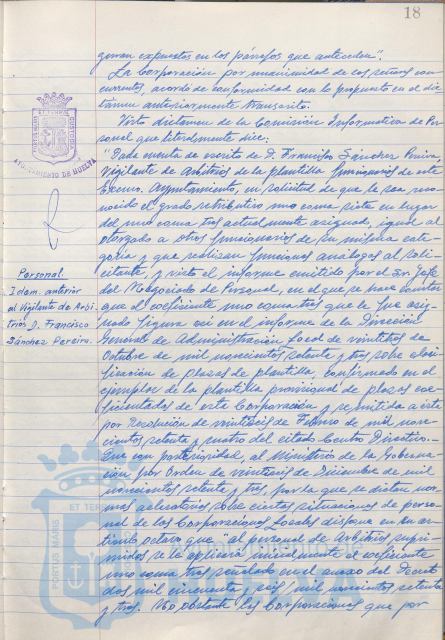 18
guran expuestos en los párrafos que anteceden".
La Corporación por unanimidad de los señores con-
currentes, acordó de conformidad con lo propuesto en el dic-
támen anteriormente transcrito.
Visto dictamen de la Comisión Informativa de Per-
sonal que literalmente dice:
"Dada cuenta de escrito de D. Francisco Sánchez Pereira,
Vigilante de Arbitrios de la plantilla funcionarios de este
Excmo. Ayuntamiento, en solicitud de que le sea reco-
nocido el grado retributivo uno coma siete en lugar
del uno coma tres actualmente asignado, igual al
otorgado a otros funcionarios de su misma cate-
goría y que realizan funciones análogas al soli-
citante, y visto el informe emitido por el Sr. Jefe
del Negociado de Personal, en el que se hace constar
que el coeficiente uno coma tres que le fue asig-
nado figura así en el informe de la Dirección
General de Administración Local de veintitres de
Octubre de mil novecientos setenta y tres sobre clasi-
ficación de plazas de plantilla, confirmado en el
ejemplar de la plantilla provisional de plazas coe-
ficientadas de esta Corporación y remitida a ésta
por Resolución de veintiseis de Febrero de mil nove-
cientos setenta y cuatro del citado Centro Directivo.
Que con posterioridad, el Ministerio de la Goberna-
ción por Orden de veintiseis de Diciembre de mil
novecientos setenta y tres, por la que se dictan nor-
mas aclaratorias sobre ciertas situaciones de perso-
nal de las Corporaciones Locales dispone en su ar-
tículo octavo que "al personal de Arbitrios supri-
midos se le aplicará inicialmente el coeficiente
uno coma tres señalado en el anexo del Decreto
dos mil cincuenta y seis/mil novecientos setenta
y tres. No obstante las Corporaciones que por
AYUNTAMIENTO DE HUELVA
Personal.
Idem. anterior
al Vigilante de Arbi-
trios D. Francisco
Sánchez Pereira.
PORTUS MARIS
ET TERRAE
HUELVA